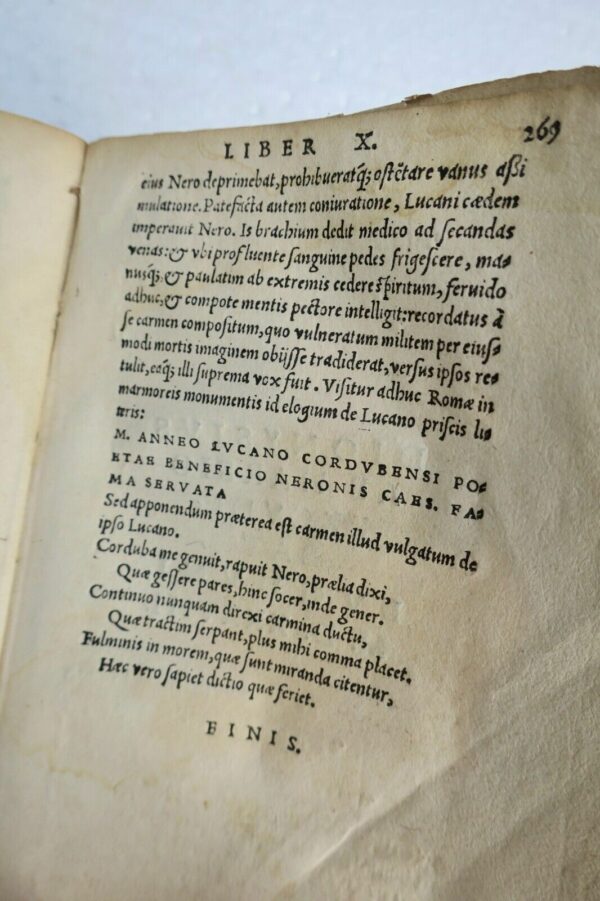 LIBER X. 269
eius Nero deprimebat, prohibueratq́; ostẽtare vanus aßi
mulatione. Patefacta autem coniuratione, Lucani cædem
imperauit Nero. Is brachium dedit medico ad secandas
venas: & vbi profluente sanguine pedes frigescere, ma-
nusq́; & paulatim ab extremis cedere spiritum, feruido
adhuc, & compote mentis pectore intelligit: recordatus à
se carmen compositum, quo vulneratum militem per eius-
modi mortis imaginem obijsse tradiderat, versus ipsos re-
tulit, eaq́; illi suprema vox fuit. Visitur adhuc Romæ in
marmoreis monumentis id elogium de Lucano priscis li-
teris:
M. ANNEO LVCANO CORDVBENSI PO-
ETAE BENEFICIO NERONIS CAES. FA-
MA SERVATA
Sed apponendum præterea est carmen illud vulgatum de
ipso Lucano.
Corduba me genuit, rapuit Nero, prælia dixi,
Quæ gessere pares, hinc socer, inde gener.
Continuo nunquam direxi carmina ductu,
Quæ tractim serpant, plus mihi comma placet.
Fulminis in morem, quæ sunt miranda citentur,
Hæc vero sapiet dictio quæ feriet.
FINIS.